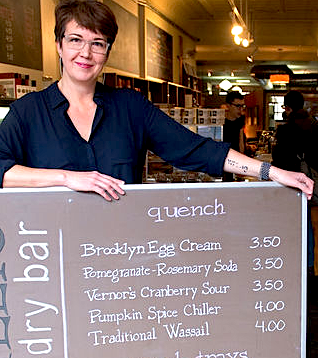 quench
Brooklyn Egg Cream 3.50
Pomegranate-Rosemary Soda 3.50
Vernor's Cranberry Sour 3.50
Pumpkin Spice Chiller 4.00
Traditional Wassail 4.00
trays
dry bar